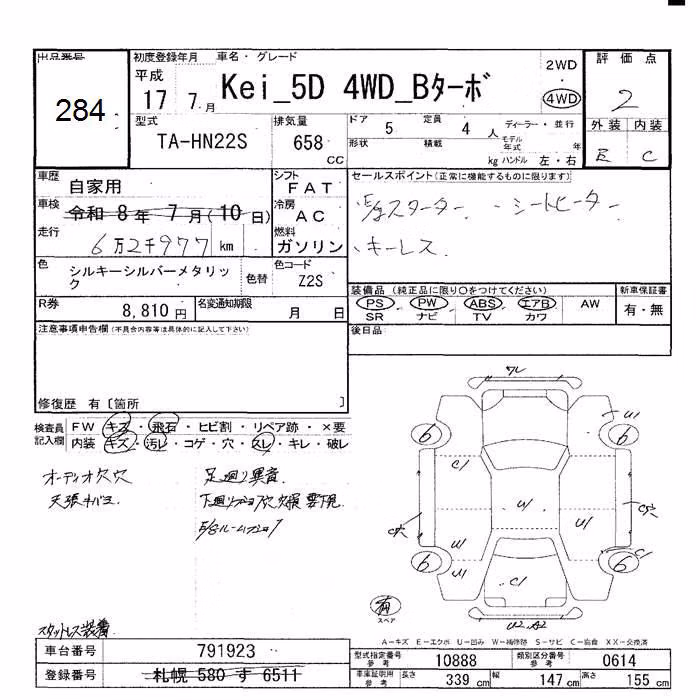 出品番号
284
初度登録年月
平成
17 7月
車名・グレード
Kei_5D 4WD_Bターボ
2WD
4WD
評価点
2
外装 内装
E C
型式
TA-HN22S
排気量
658
CC
ドア 5
定員 4 人
ディーラー・並行
形状
積載
kg
モデル年式 年
ハンドル 左・右
車歴
自家用
シフト
FAT
セールスポイント(正常に機能するものに限ります)
・E/gスターター ・シートヒーター
・キーレス
車検
令和 8年 7月(10日)
冷房
AC
走行
6万2千977 km
燃料
ガソリン
色
シルキーシルバーメタリック
色替
色コード
Z2S
装備品(純正品に限り○をつけてください)
PS PW ABS エアB AW
SR ナビ TV カワ
新車保証書
有・無
R券
8,810円
名変通知期限
月 日
後日品
注意事項申告欄(不具合内容等は具体的に記入して下さい)
修復歴 有〔箇所 〕
検査員記入欄
FW キズ・飛石・ヒビ割・リペア跡・×要
内装 キズ・汚レ・コゲ・穴・スレ・キレ・破レ
オーディオ欠穴
天張キバミ
足廻り異音
E/gルーム
スタットレス装着
ワレ
U1
6
6
C1
U1
U1
C穴
U1
U1
C1
6
6
C1
有
スペア
U2.A2
A-キズ E-エクボ U-凹み W-補修跡 S-サビ C-腐食 XX-交換済
車台番号
791923
登録番号
札幌 580 す 6511
型式指定番号
参考
10888
類別区分番号
参考
0614
車庫証明用
参考
長さ 339 cm
幅 147 cm
高さ 155 cm